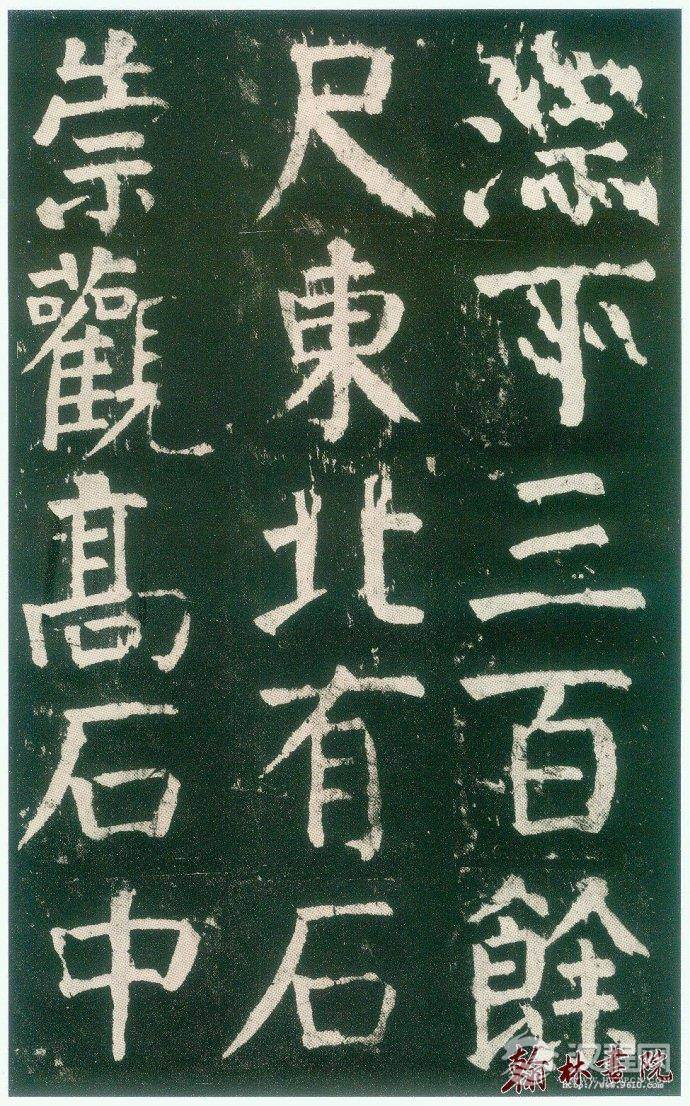 瀑下三百餘
尺東北有石
崇觀高石中
翰林書院
http://www.9610.com